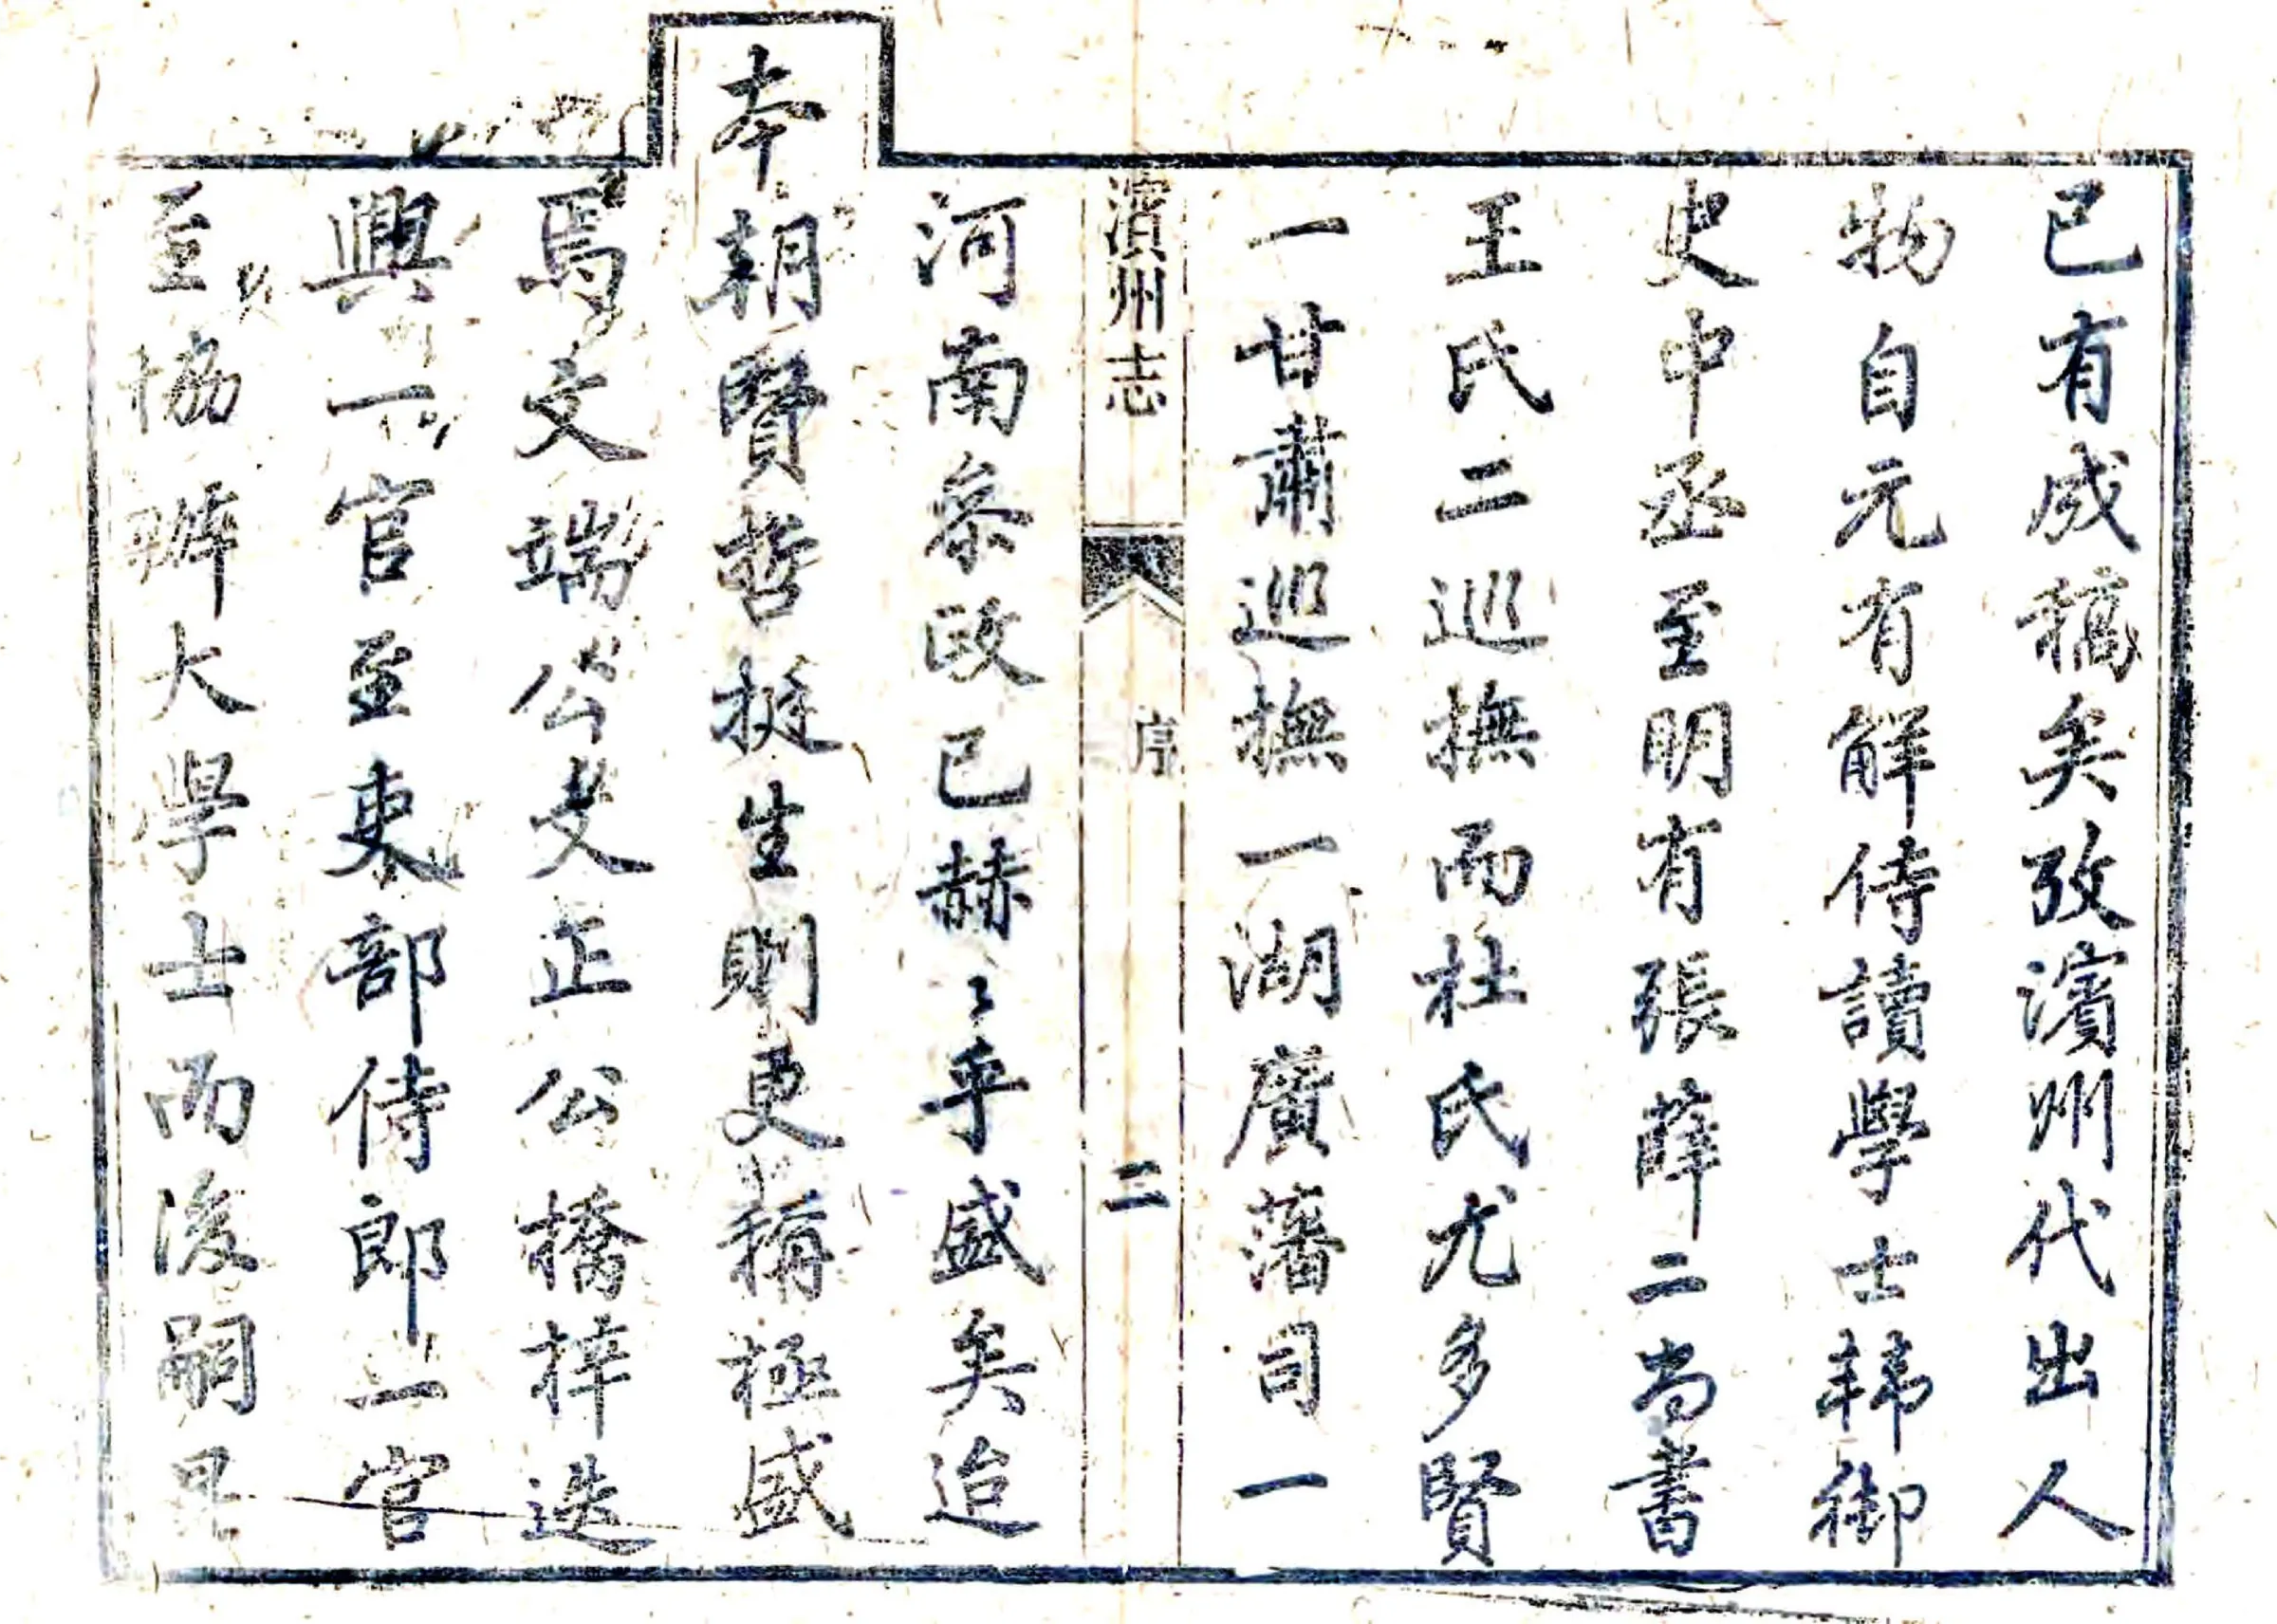 已有成稿矣攷濱州代出人
物自元有解侍讀學士韓御
史中丞至明有張薛二尚書
王氏二巡撫而杜氏尤多賢
一甘肅巡撫一湖廣藩司一
濱州志 序 二
河南叅政已赫〻乎盛矣迨
本朝賢哲挺生則更稱極盛
焉文端公文正公橋梓迭
興一官至吏部侍郎一官
至協辦大學士而後嗣